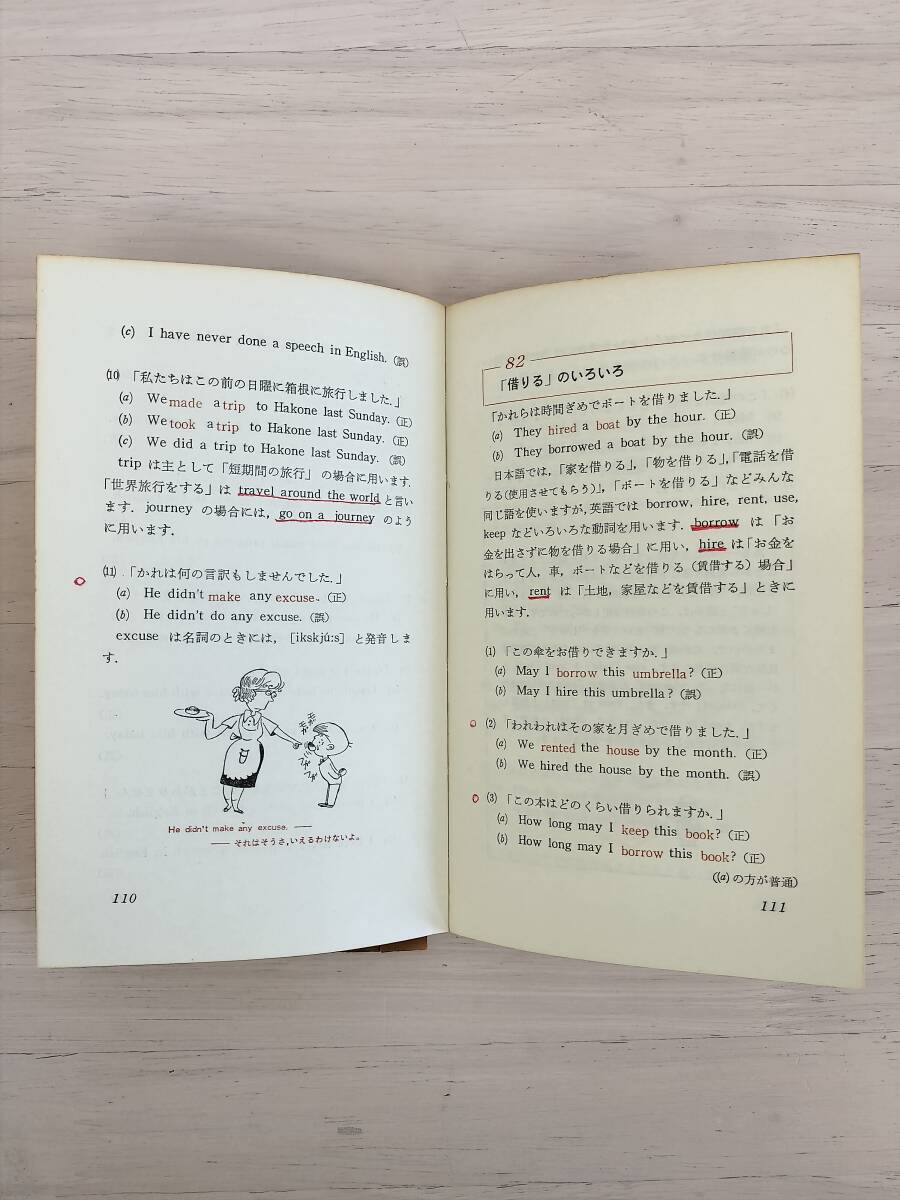 (c) I have never done a speech in English. (誤)
(10) 「私たちはこの前の日曜に箱根に旅行しました.」
(a) We made a trip to Hakone last Sunday. (正)
(b) We took a trip to Hakone last Sunday. (正)
(c) We did a trip to Hakone last Sunday. (誤)
trip は主として「短期間の旅行」の場合に用います.
「世界旅行をする」は travel around the world と言い
ます. journey の場合には, go on a journey のよう
に用います.
(11) 「かれは何の言訳もしませんでした.」
(a) He didn't make any excuse. (正)
(b) He didn't do any excuse. (誤)
excuse は名詞のときには, [ikskjú:s] と発音しま
す.
モガ
モガ
He didn't make any excuse. ——
—— それはそうさ、いえるわけないよ。
110
82
「借りる」のいろいろ
「かれらは時間ぎめでボートを借りました.」
(a) They hired a boat by the hour. (正)
(b) They borrowed a boat by the hour. (誤)
日本語では,「家を借りる」,「物を借りる」,「電話を借
りる(使用させてもらう)」,「ボートを借りる」などみんな
同じ語を使いますが, 英語では borrow, hire, rent, use,
keep などいろいろな動詞を用います. borrow は「お
金を出さずに物を借りる場合」に用い, hire は「お金を
はらって人, 車, ボートなどを借りる(賃借する)場合」
に用い, rent は「土地, 家屋などを賃借する」ときに
用います.
(1) 「この傘をお借りできますか.」
(a) May I borrow this umbrella? (正)
(b) May I hire this umbrella? (誤)
(2) 「われわれはその家を月ぎめで借りました.」
(a) We rented the house by the month. (正)
(b) We hired the house by the month. (誤)
(3) 「この本はどのくらい借りられますか.」
(a) How long may I keep this book? (正)
(b) How long may I borrow this book? (正)
((a)の方が普通)
111